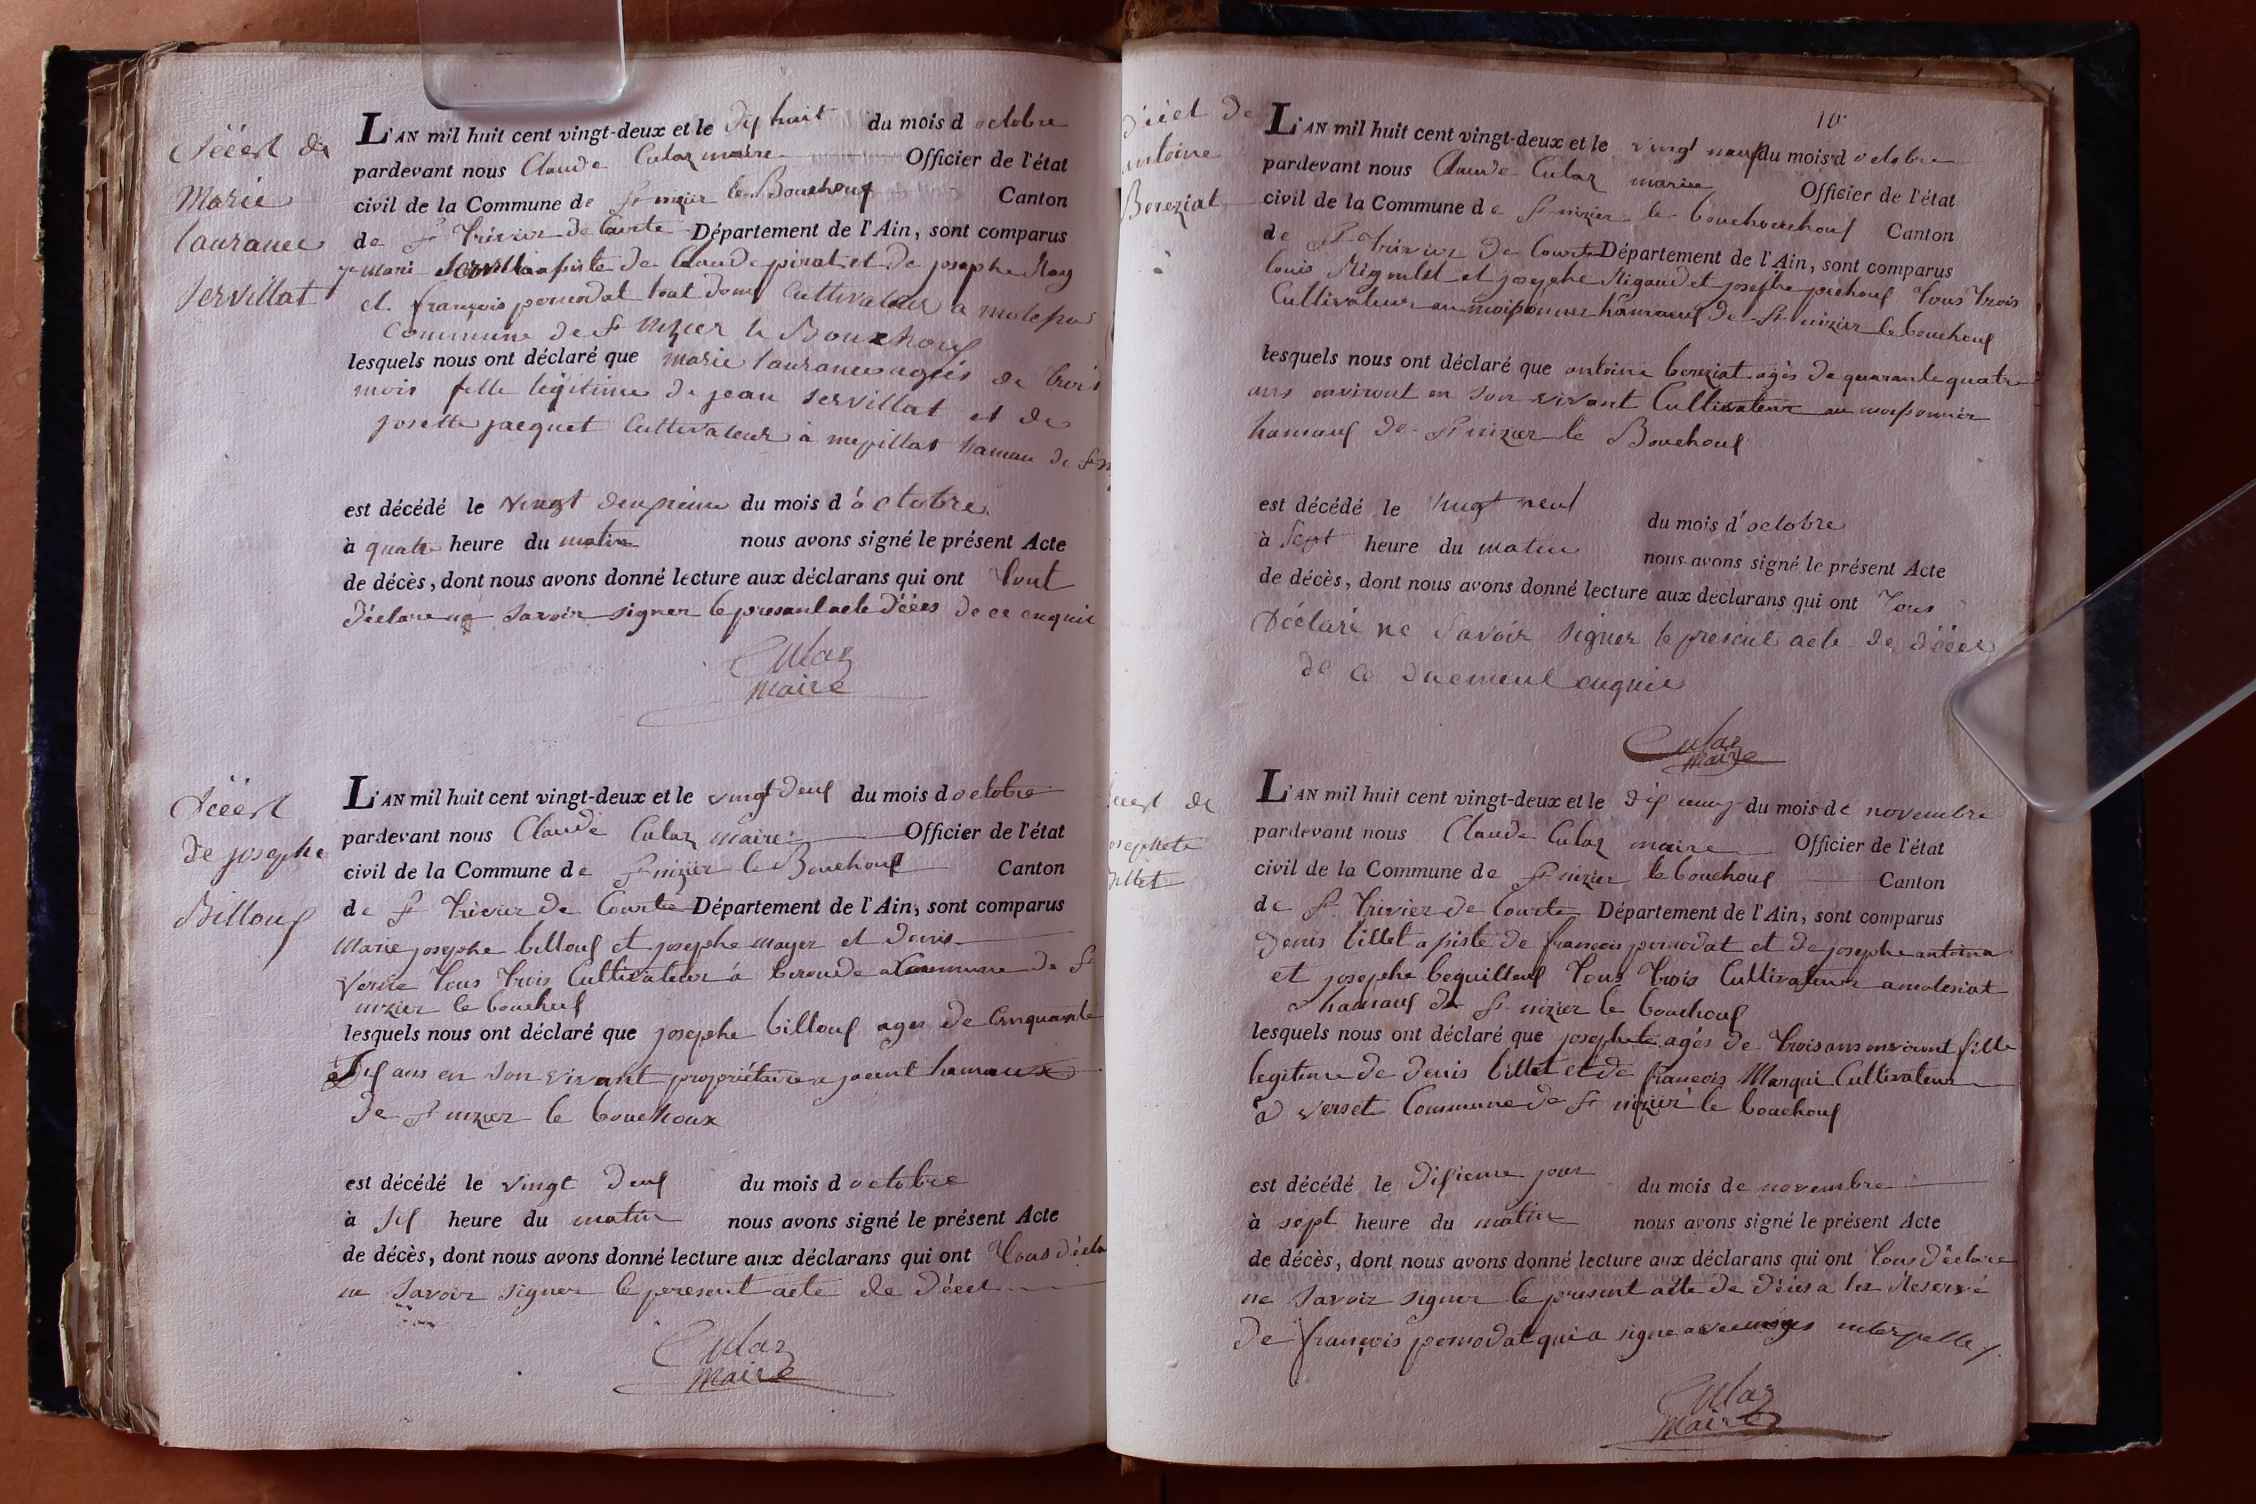 Décest de
Marie
lauranee
Servillat
L'AN mil huit cent vingt-deux et le dix huit du mois d octobre
pardevant nous Claude Culaz maire Officier de l'état
civil de la Commune de St nizier le Bouchouf Canton
de St Trivier de Courte Département de l'Ain, sont comparus
marie Servilla asiste de Claude pirat et de josephe Ray
et françois pernodat tout domt Cultivateur a molesia
Commune de St nizier le Bouxhouf
lesquels nous ont déclaré que marie lauranee agées de trois
mois fille légitime de jean Servillat et de
josette jacquet Cultivateur à mepillat hamau de St n
est décédé le vingt deuxieme du mois d'octobre
à quatre heure du matin nous avons signé le présent Acte
de décès, dont nous avons donné lecture aux déclarans qui ont tout
déclare ne savoir signer le presant acte dééces de ce enquie
Culaz
maire
Décest
de josephe
Billouf
L'AN mil huit cent vingt-deux et le vingt deuf du mois d octobre
pardevant nous Claude Culaz maire Officier de l'état
civil de la Commune de St nizier le Bouchouf Canton
de St Trivier de Courte Département de l'Ain, sont comparus
Marie josephe billouf et josephe mayer et denis
verne tous trois Cultivateur á beroude a Commune de St
nizier le bouchouf
lesquels nous ont déclaré que josephe billouf ages de Cinquante
dif ans en son vivant propriétaire a jaent hamaux
de St nizier le bouchoux
est décédé le vingt deuf du mois d octobre
à sif heure du matin nous avons signé le présent Acte
de décès, dont nous avons donné lecture aux déclarans qui ont tous décla
ne savoir signer le peresent acte de décet
Culaz
maire
10
décet de
antoine
Bereziat
L'AN mil huit cent vingt-deux et le vingt neuf du mois d octobre
pardevant nous Claude Culaz mariee Officier de l'état
civil de la Commune de St nizier le bouchouchouf Canton
de St Trivier de Courte Département de l'Ain, sont comparus
louis Rigoulet et josephe Rigaudet josephe prehouf tous trois
Cultivateur au moissonnier hamauf de St nizier le bouchouf
lesquels nous ont déclaré que antoine bereziat agés de quarante quatre
ans environt en son vivant Cultivateur au moissonnier
hamauf de St nizier le Bouchouf
est décédé le vingt neuf du mois d'octobre
à sept heure du matin nous avons signé le présent Acte
de décès, dont nous avons donné lecture aux déclarans qui ont tous
Déclaré ne savoir signer le presint acte de dééces
de ce duement enquie
Culaz
maire
écest de
osephete
illet
L'AN mil huit cent vingt-deux et le dif du mois de novembre
pardevant nous Claude Culaz maire Officier de l'état
civil de la Commune de St nizier le bouchouf Canton
de St Trivier de Courte Département de l'Ain, sont comparus
denis billet asisté de françois pernodat et de josephe antoina
et josephe bequillouf tous trois Cultivateur a molesiat
hamauf de St nizier le bouchouf
lesquels nous ont déclaré que josephete agés de trois ans environt fille
legitime de denis billet et de françois Marqui Cultivateur
à verset Commune de St nizier le bouchouf
est décédé le difieme jour du mois de novembre
à sept heure du matin nous avons signé le présent Acte
de décès, dont nous avons donné lecture aux déclarans qui ont tous déclare
ne savoir signer le present acte de déces a lez Reservé
de françois pernodat qui a signe interpelle
Culaz
Maire